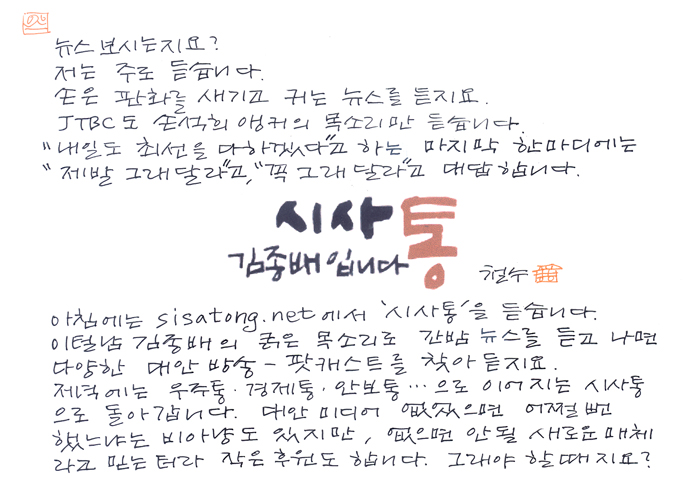 뉴스 보시는지요?
저는 주로 듣습니다.
손은 판화를 새기고 귀는 뉴스를 듣지요.
JTBC도 손석희 앵커의 목소리만 듣습니다.
"내일도 최선을 다하겠다"고 하는 마지막 한마디에는
"제발 그래달라"고, "꼭 그래달라"고 대답합니다.
시사통
김종배입니다
철수
아침에는 sisatong.net에서 '시사통'을 듣습니다.
이털남 김종배의 굵은 목소리로 간밤 뉴스를 듣고 나면
다양한 대안 방송 - 팟캐스트를 찾아 듣지요.
저녁에는 우주통·경제통·안보통…으로 이어지는 시사통
으로 돌아갑니다. 대안 미디어 없었으면 어쩔 뻔
했느냐는 비아냥도 있지만, 없으면 안될 새로운 매체
라고 믿는 터라 작은 후원도 합니다. 그래야 할 때지요?